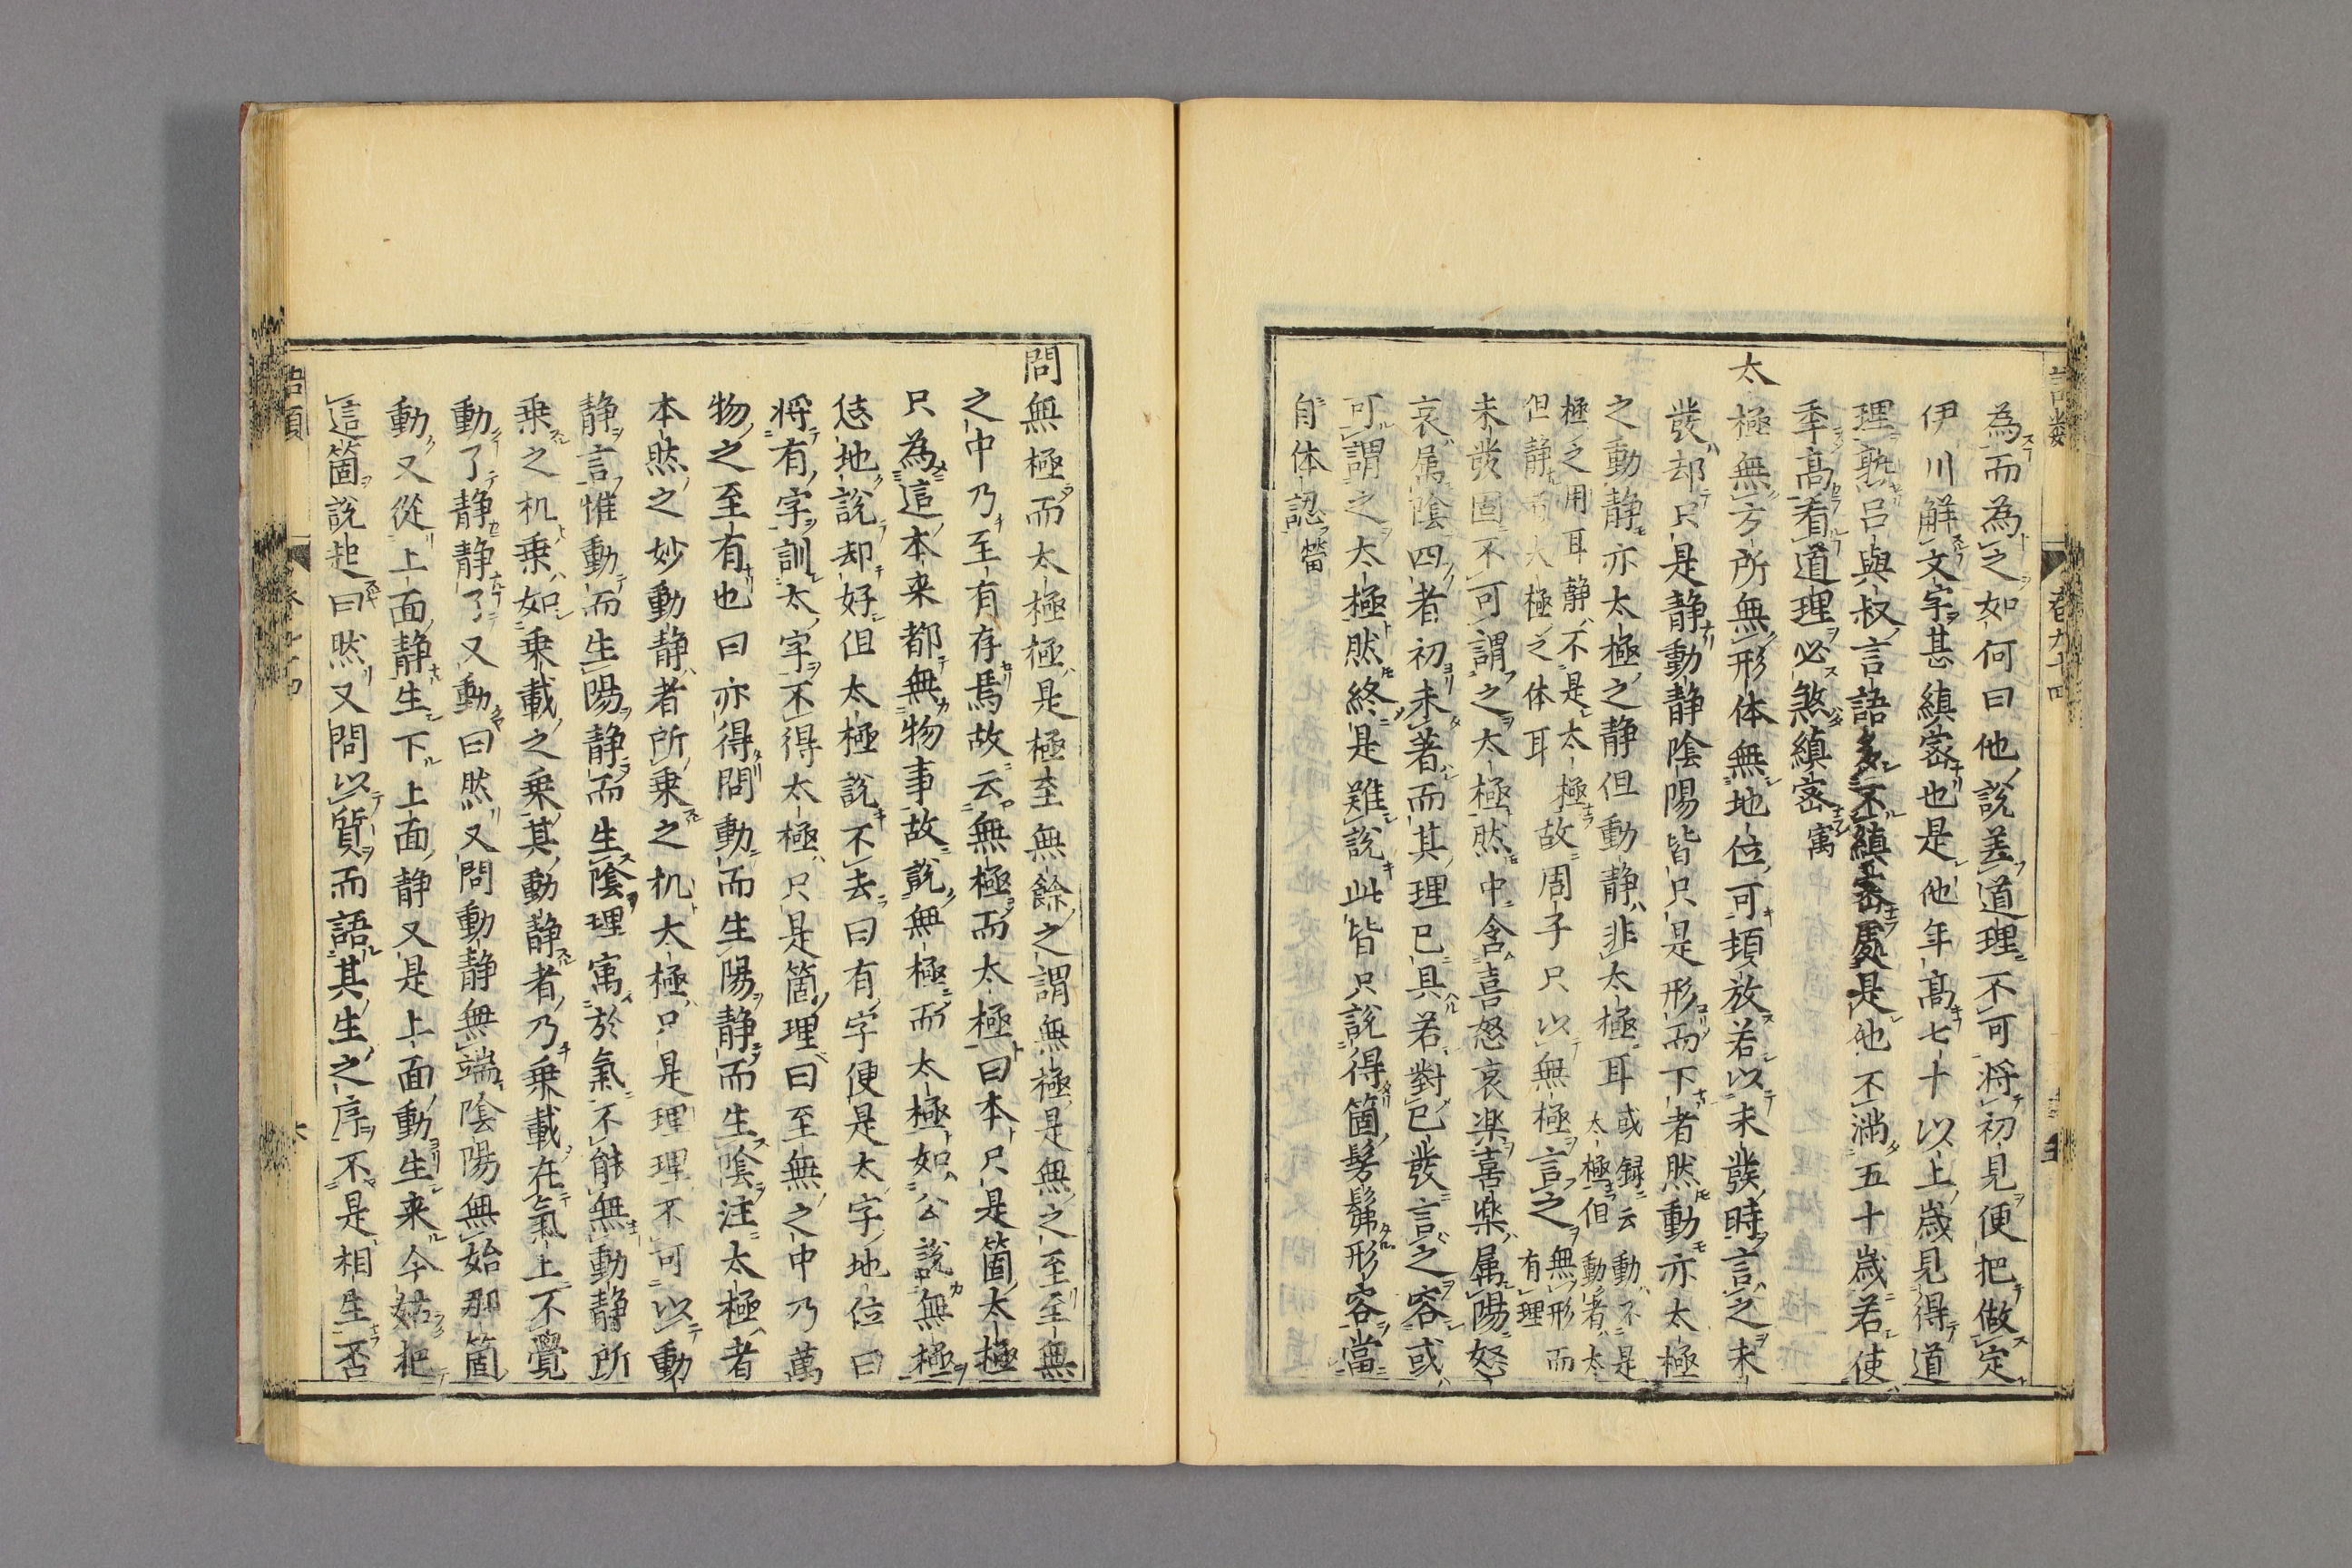 為而為之如何曰他說差道理不可將初見便把做定
伊川解文字甚縝密也是他年高七十以上歲見得道
理熟呂與叔言語多不縝密處是他不滿五十歲若使
年高看道理必煞縝密㝢
太極無方所無形体無地位可頓放若以未發時言之未
發却只是静動静陰陽皆只是形而下者然動亦太極
之動静亦太極之静但動静非太極耳或録云動不是
太極但動者太
極之用耳静不是太極
但静而太極之体耳
故周子只以無極言之無形而
有理
未發固不可謂之太極然中含喜怒哀楽喜楽属陽怒
哀属陰四者初未著而其理已具若對已發言之容或
可謂之太極然終是難說此皆只說得箇髣髴形容當
自体認㽦
問無極而太極極是極至無餘之謂無極是無之至至無
之中乃至有存焉故云無極而太極曰本只是箇太極
只為這本来都無物事故說無極而太極如公說無極
恁地說却好但太極說不去曰有字便是太字地位曰
将有字訓太字不得太極只是箇理曰至無之中乃萬
物之至有也曰亦得問動而生陽静而生陰注太極者
本然之妙動静者所乗之机太極只是理理不可以動
静言惟動而生陽静而生陰理寓於氣不能無動静所
乗之机乗如乗載之乗其動静者乃乗載在氣上不覺
動了静静了又動曰然又問動静無端陰陽無始那箇
動又從上面静生下上面静又是上面動生来今姑把
這箇說起曰然又問以質而語其生之序不是相生否